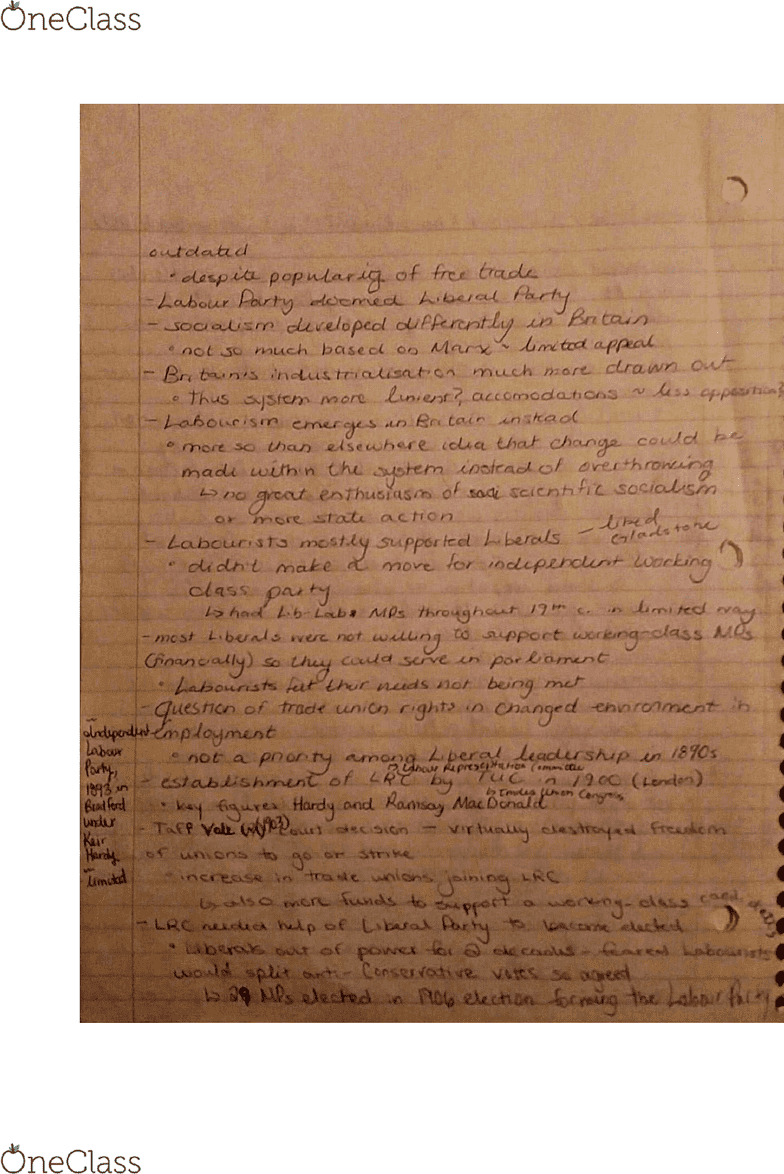 OneClass
outdated
• despite popularity of free trade
- Labour Party doomed Liberal Party
- socialism developed differently in Britain
• not so much based on Marx ~ limited appeal
- Britain's industrialisation much more drawn out
• thus system more linient?, accomodations ~ less opposition?
- Labourism emerges in Britain instead
• more so than elsewhere idea that change could be
made within the system instead of overthrowing
↳ no great enthusiasm of scientific socialism
or more state action
- Labourists mostly supported Liberals - liked Gladstone
• didn't make a move for independent working
class party
↳ had Lib-Labs MPs throughout 19th c. in limited way
- most Liberals were not willing to support working-class MPs
(financially) so they could serve in parliament
• Labourists felt their needs not being met
- Question of trade union rights in changed environment in
employment
• not a priority among Liberal leadership in 1890s
↳ Labour Representation Committee
- establishment of LRC by TUC in 1900 (London)
↳ Trades Union Congress
• key figures Hardy and Ramsay MacDonald
- Taff Vale (1903) Court decision - virtually destroyed freedom
of unions to go on strike
- increase in trade unions joining LRC
↳ also more funds to support a working-class
- LRC needed help of Liberal Party to become elected
• Liberals out of power for 2 decades - feared Labourists
would split anti-Conservative votes so agreed
↳ 29 MPs elected in 1906 election forming the Labour Party
Independent
Labour
Party,
1893 in
Bradford
under
Keir
Hardy
- limited
OneClass